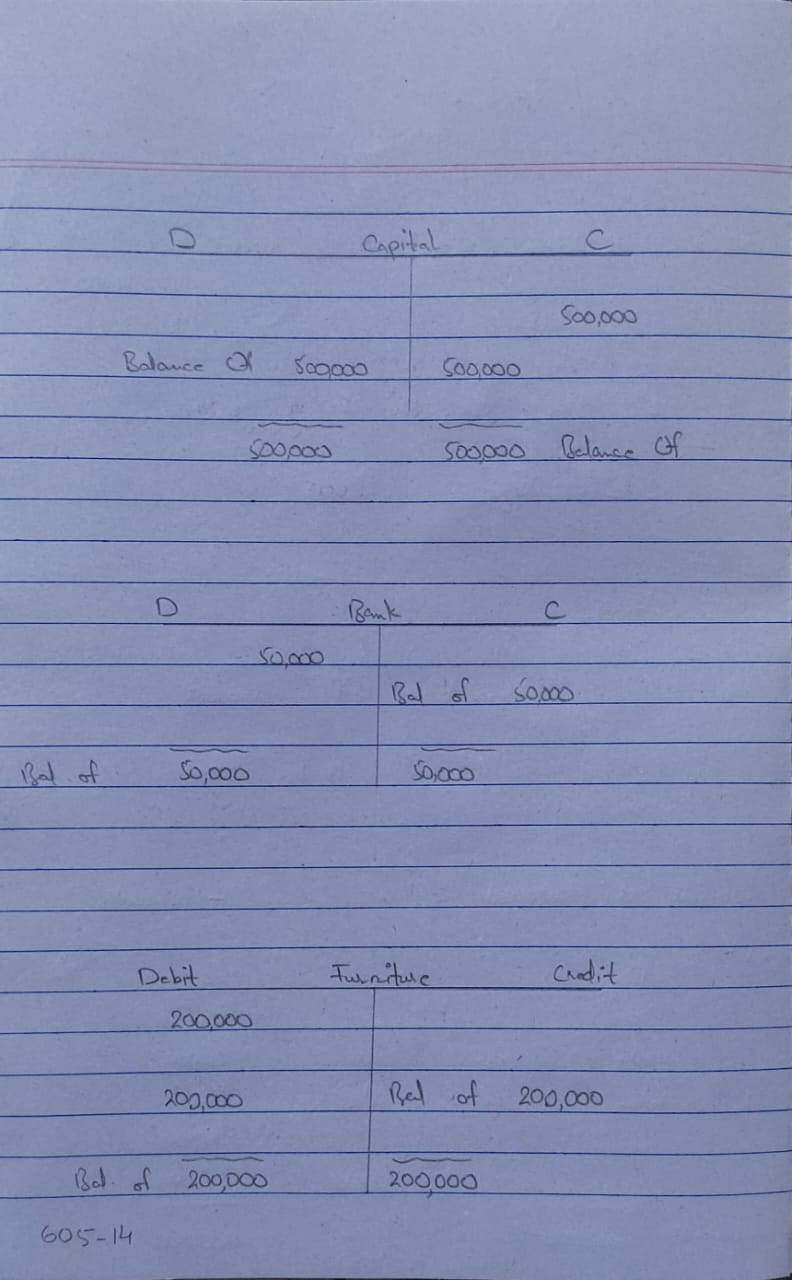 D Capital C
500,000
Balance Of 500,000 500,000
500,000 500,000 Balance Of
D Bank C
50,000
Bal of 50,000
Bal. of 50,000 50,000
Debit Furniture Credit
200,000
200,000 Bal of 200,000
Bal. of 200,000 200,000
605-14